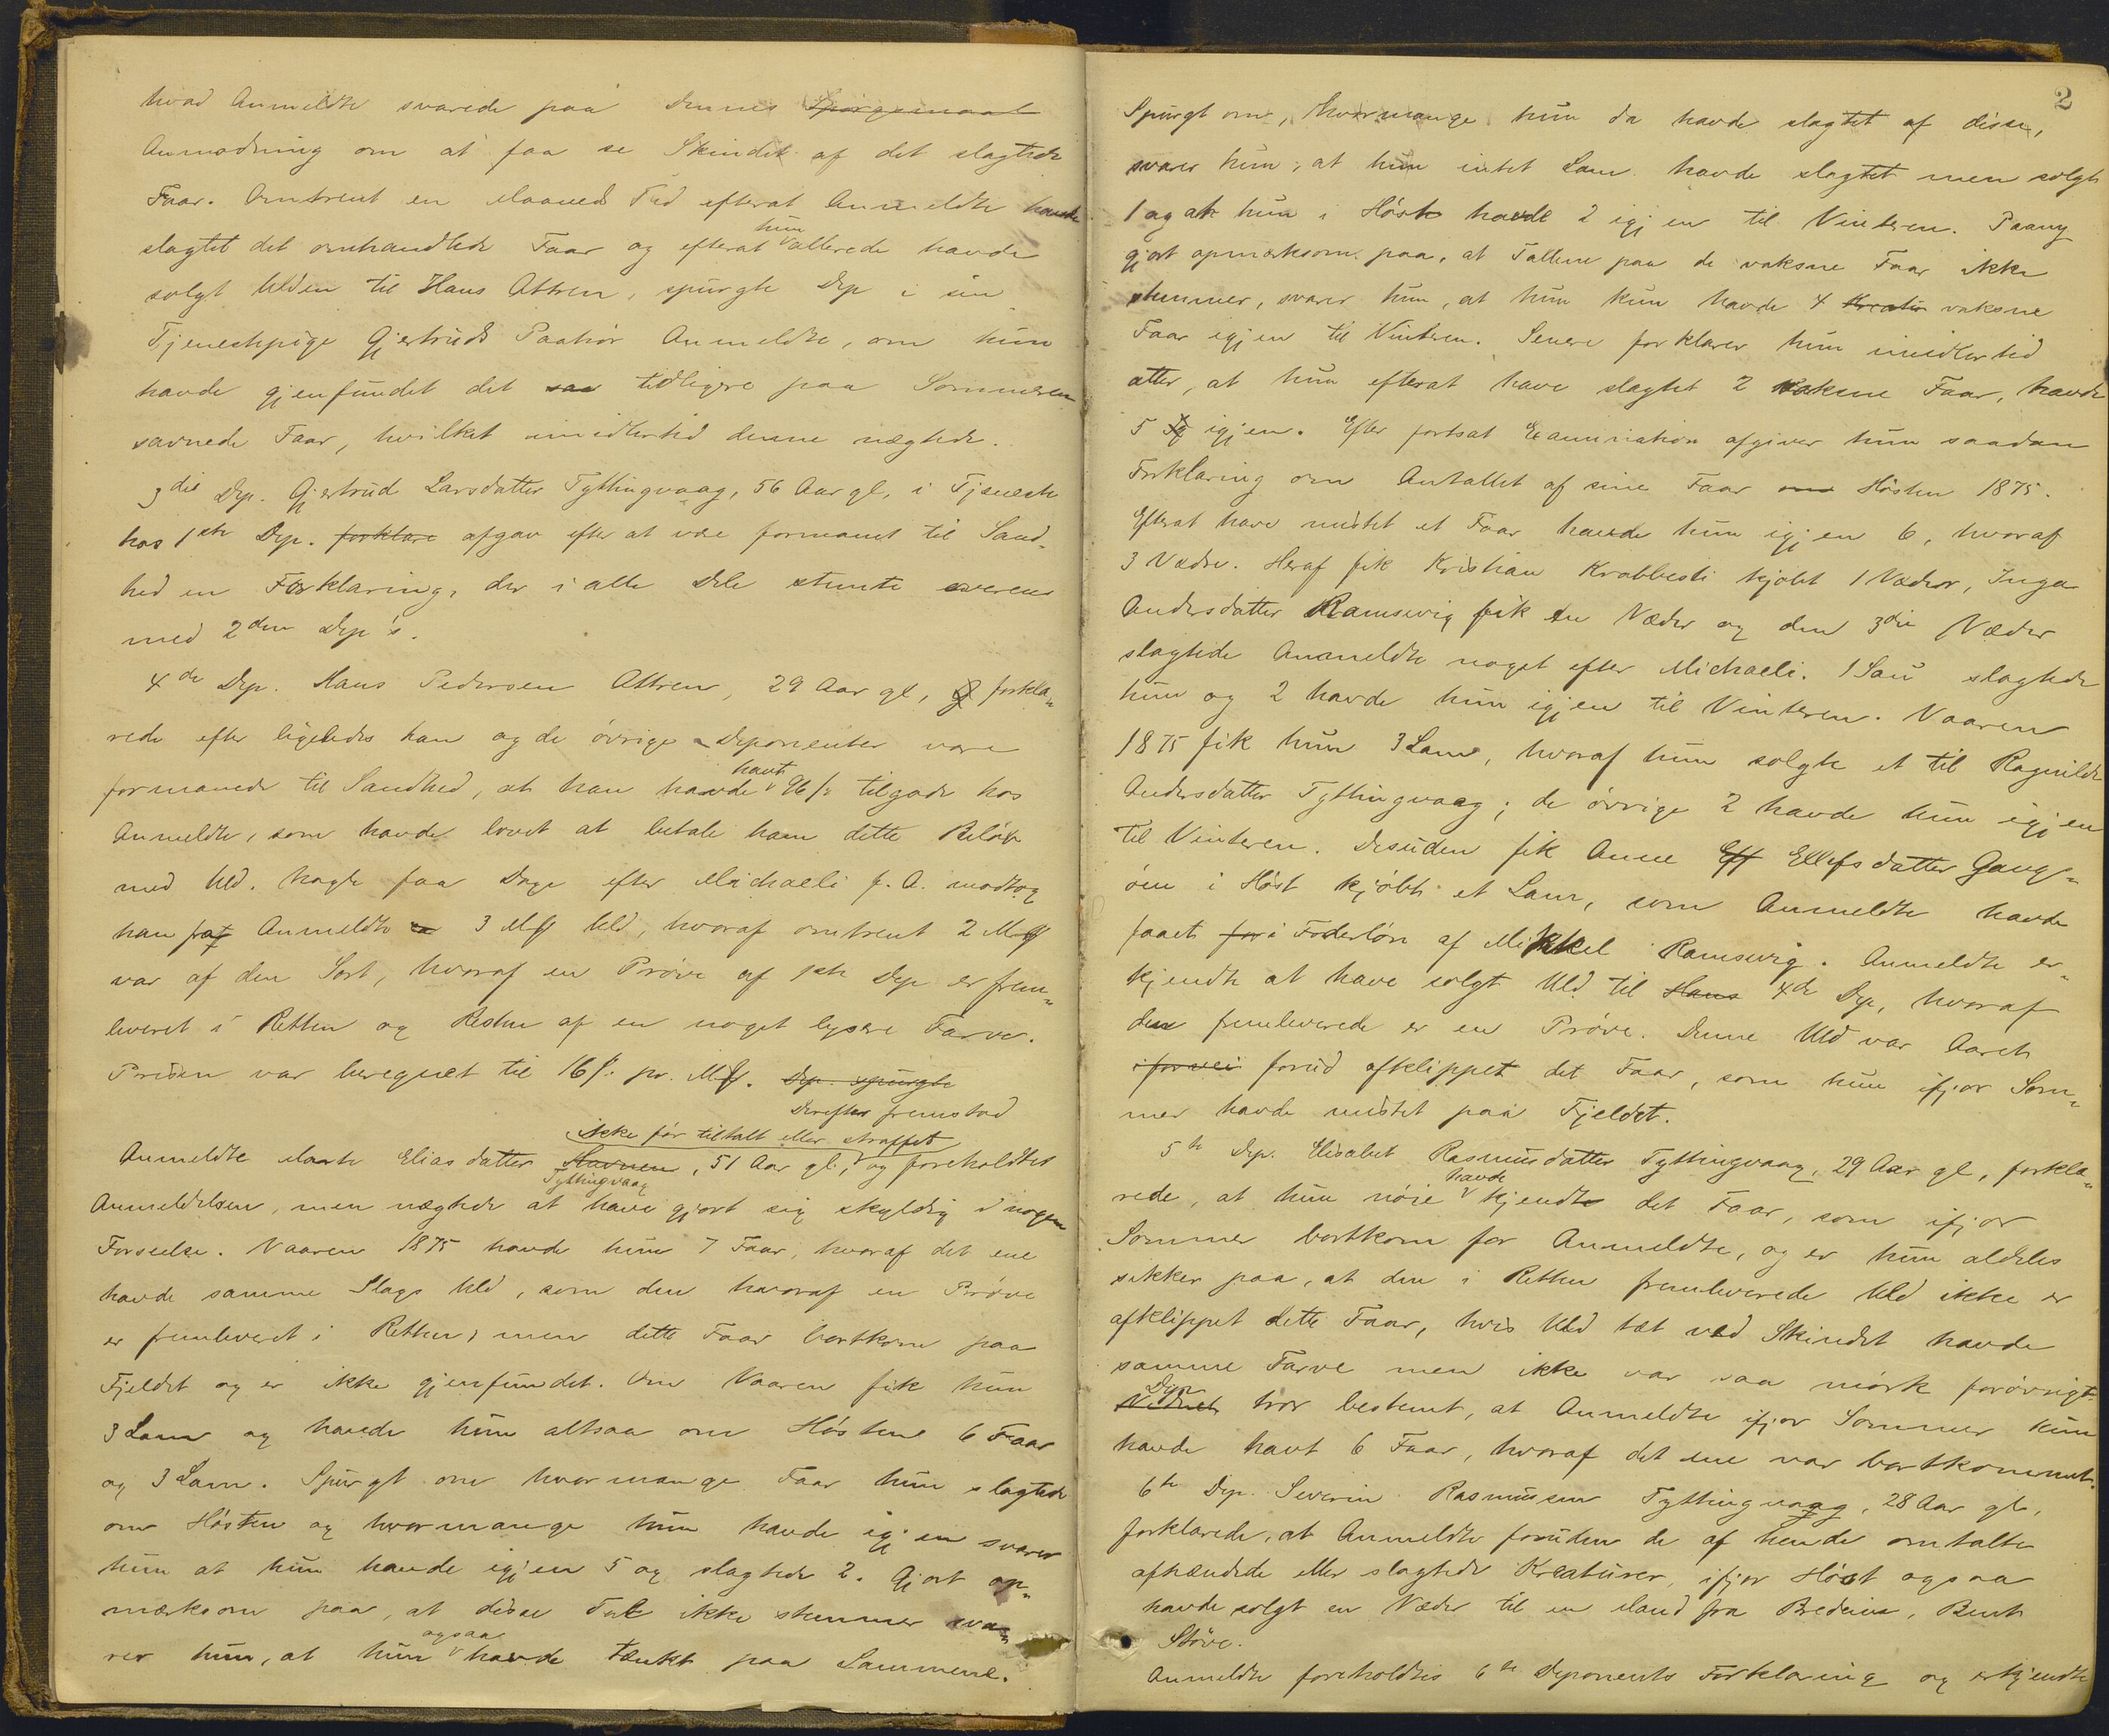 hvad Anmeldte svarede paa dennes Spørgsmaal
Anmodning om at faa se Skindet af det slagtede
Faar. Omtrent en Maaneds Tid efterat Anmeldte havde
hun
slagtet det omhandlede Faar og efterat allerede havde
solgt Ulden til Hans Attren, spurgte Dep i sin
Tjenestepige Gjertruds Paahør Anmeldte, om hun
havde gjenfundet det saa tidligere paa Sommeren
savnede Faar, hvilket imidlertid denne nægtede.
3die Dep. Gjertrud Larsdatter Tyttingvaag, 56 Aar gl, i Tjeneste
hos 1ste Dep. forklare afgav efter at være formanet til Sand-
hed en Forklaring, der i alle Dele stemte overens
med 2den Dep's.
4de Dep. Hans Pedersen Attren, 29 Aar gl, forkla-
rede efter ligeledes han og de øvrige Deponenter vare
havt
formanede til Sandhed, at han havde 96 s tilgode hos
Anmeldte, som havde lovet at betale ham dette Beløb
med Uld. Nogle faa Dage efter Michaeli f. A. modtog
han af Anmeldte 3 Mk Uld, hvoraf omtrent 2 Mk
var af den Sort, hvoraf en Prøve af 1ste Dep er frem-
leveret i Retten og Resten af en noget lysere Farve.
Prisen var beregnet til 16 s. pr. Mk. Dep. spurgte
Derefter fremstod
ikke før tiltalt eller straffet
Anmeldte Marte Eliasdatter Havnen, 51 Aar gl, og foreholdtes
Tyttingvaag
Anmeldelsen, men nægtede at have gjort sig skyldig i nogen
Forseelse. Vaaren 1875 havde hun 7 Faar, hvoraf det ene
havde samme Slags Uld, som den hvoraf en Prøve
er fremleveret i Retten, men dette Faar bortkom paa
Fjeldet og er ikke gjenfundet. Om Vaaren fik hun
3 Lam og havde hun altsaa om Høsten 6 Faar
og 3 Lam. Spurgt om hvor mange Faar hun slagtede
om Høsten og hvormange hun havde igjen svarer
hun at hun havde igjen 5 og slagtede 2. Gjort op-
mærksom paa, at disse Tal ikke stemmer sva-
ogsaa
rer hun, at hun havde tænkt paa Lammene.
2
Spurgt om, hvormange hun da havde slagtet af disse,
svarer hun, at hun intet Lam havde slagtet men solgt
1 og at hun i Høst havde 2 igjen til Vinteren. Paany
gjort opmærksom paa, at Tallene paa de voksne Faar ikke
stemmer, svarer hun, at hun kun havde 4 Kreatur voksne
Faar igjen til Vinteren. Senere forklarer hun imidlertid
atter, at hun efterat have slagtet 2 voksne Faar, havde
5 igjen. Efter fortsat Examination afgiver hun saadan
Forklaring om Antallet af sine Faar om Høsten 1875.
Efterat have mistet et Faar havde hun igjen 6, hvoraf
3 Vædre. Heraf fik Kristian Krabbesti kjøbt 1 Væder, Inga
Andersdatter Ramsvig fik en Væder og den 3die Væder
slagtede Anmeldte noget efter Michaeli. 1 Sau slagtede
hun og 2 havde hun igjen til Vinteren. Vaaren
1875 fik hun 3 Lam, hvoraf hun solgte et til Ragnilde
Andersdatter Tyttingvaag; de øvrige 2 havde hun igjen
til Vinteren. Desuden fik Anne Eff Ellefsdatter Gang-
øen i Høst kjøbt et Lam, som Anmeldte havde
faaet for i Foderløn af Mikkel Ramsvig. Anmeldte er-
kjendte at have solgt Uld til Hans 4de Dep, hvoraf
den fremleverede er en Prøve. Denne Uld var Aaret
iforvei forud afklippet det Faar, som hun ifjor Som-
mer havde mistet paa Fjeldet.
5te Dep. Elisabet Rasmusdatter Tyttingvaag, 29 Aar gl, forkla-
havde
rede, at hun nøie kjendte det Faar, som ifjor
Sommer bortkom for Anmeldte, og er hun aldeles
sikker paa, at den i Retten fremleverede Uld ikke er
afklippet dette Faar, hvis Uld tæt ved Skindet havde
samme Farve men ikke var saa mørk forøvrigt.
Dep
Vidnet tror bestemt, at Anmeldte ifjor Sommer kun
havde havt 6 Faar, hvoraf det ene var bortkommet.
6te Dep. Severin Rasmussen Tyttingvaag, 28 Aar gl,
forklarede, at Anmeldte foruden de af hende omtalte
afhændede eller slagtede Kreaturer, ifjor Høst ogsaa
havde solgt en Væder til en Mand fra Bredevin, Bent
Støve.
Anmeldte foreholdtes 6te Deponents Forklaring og erkjendte